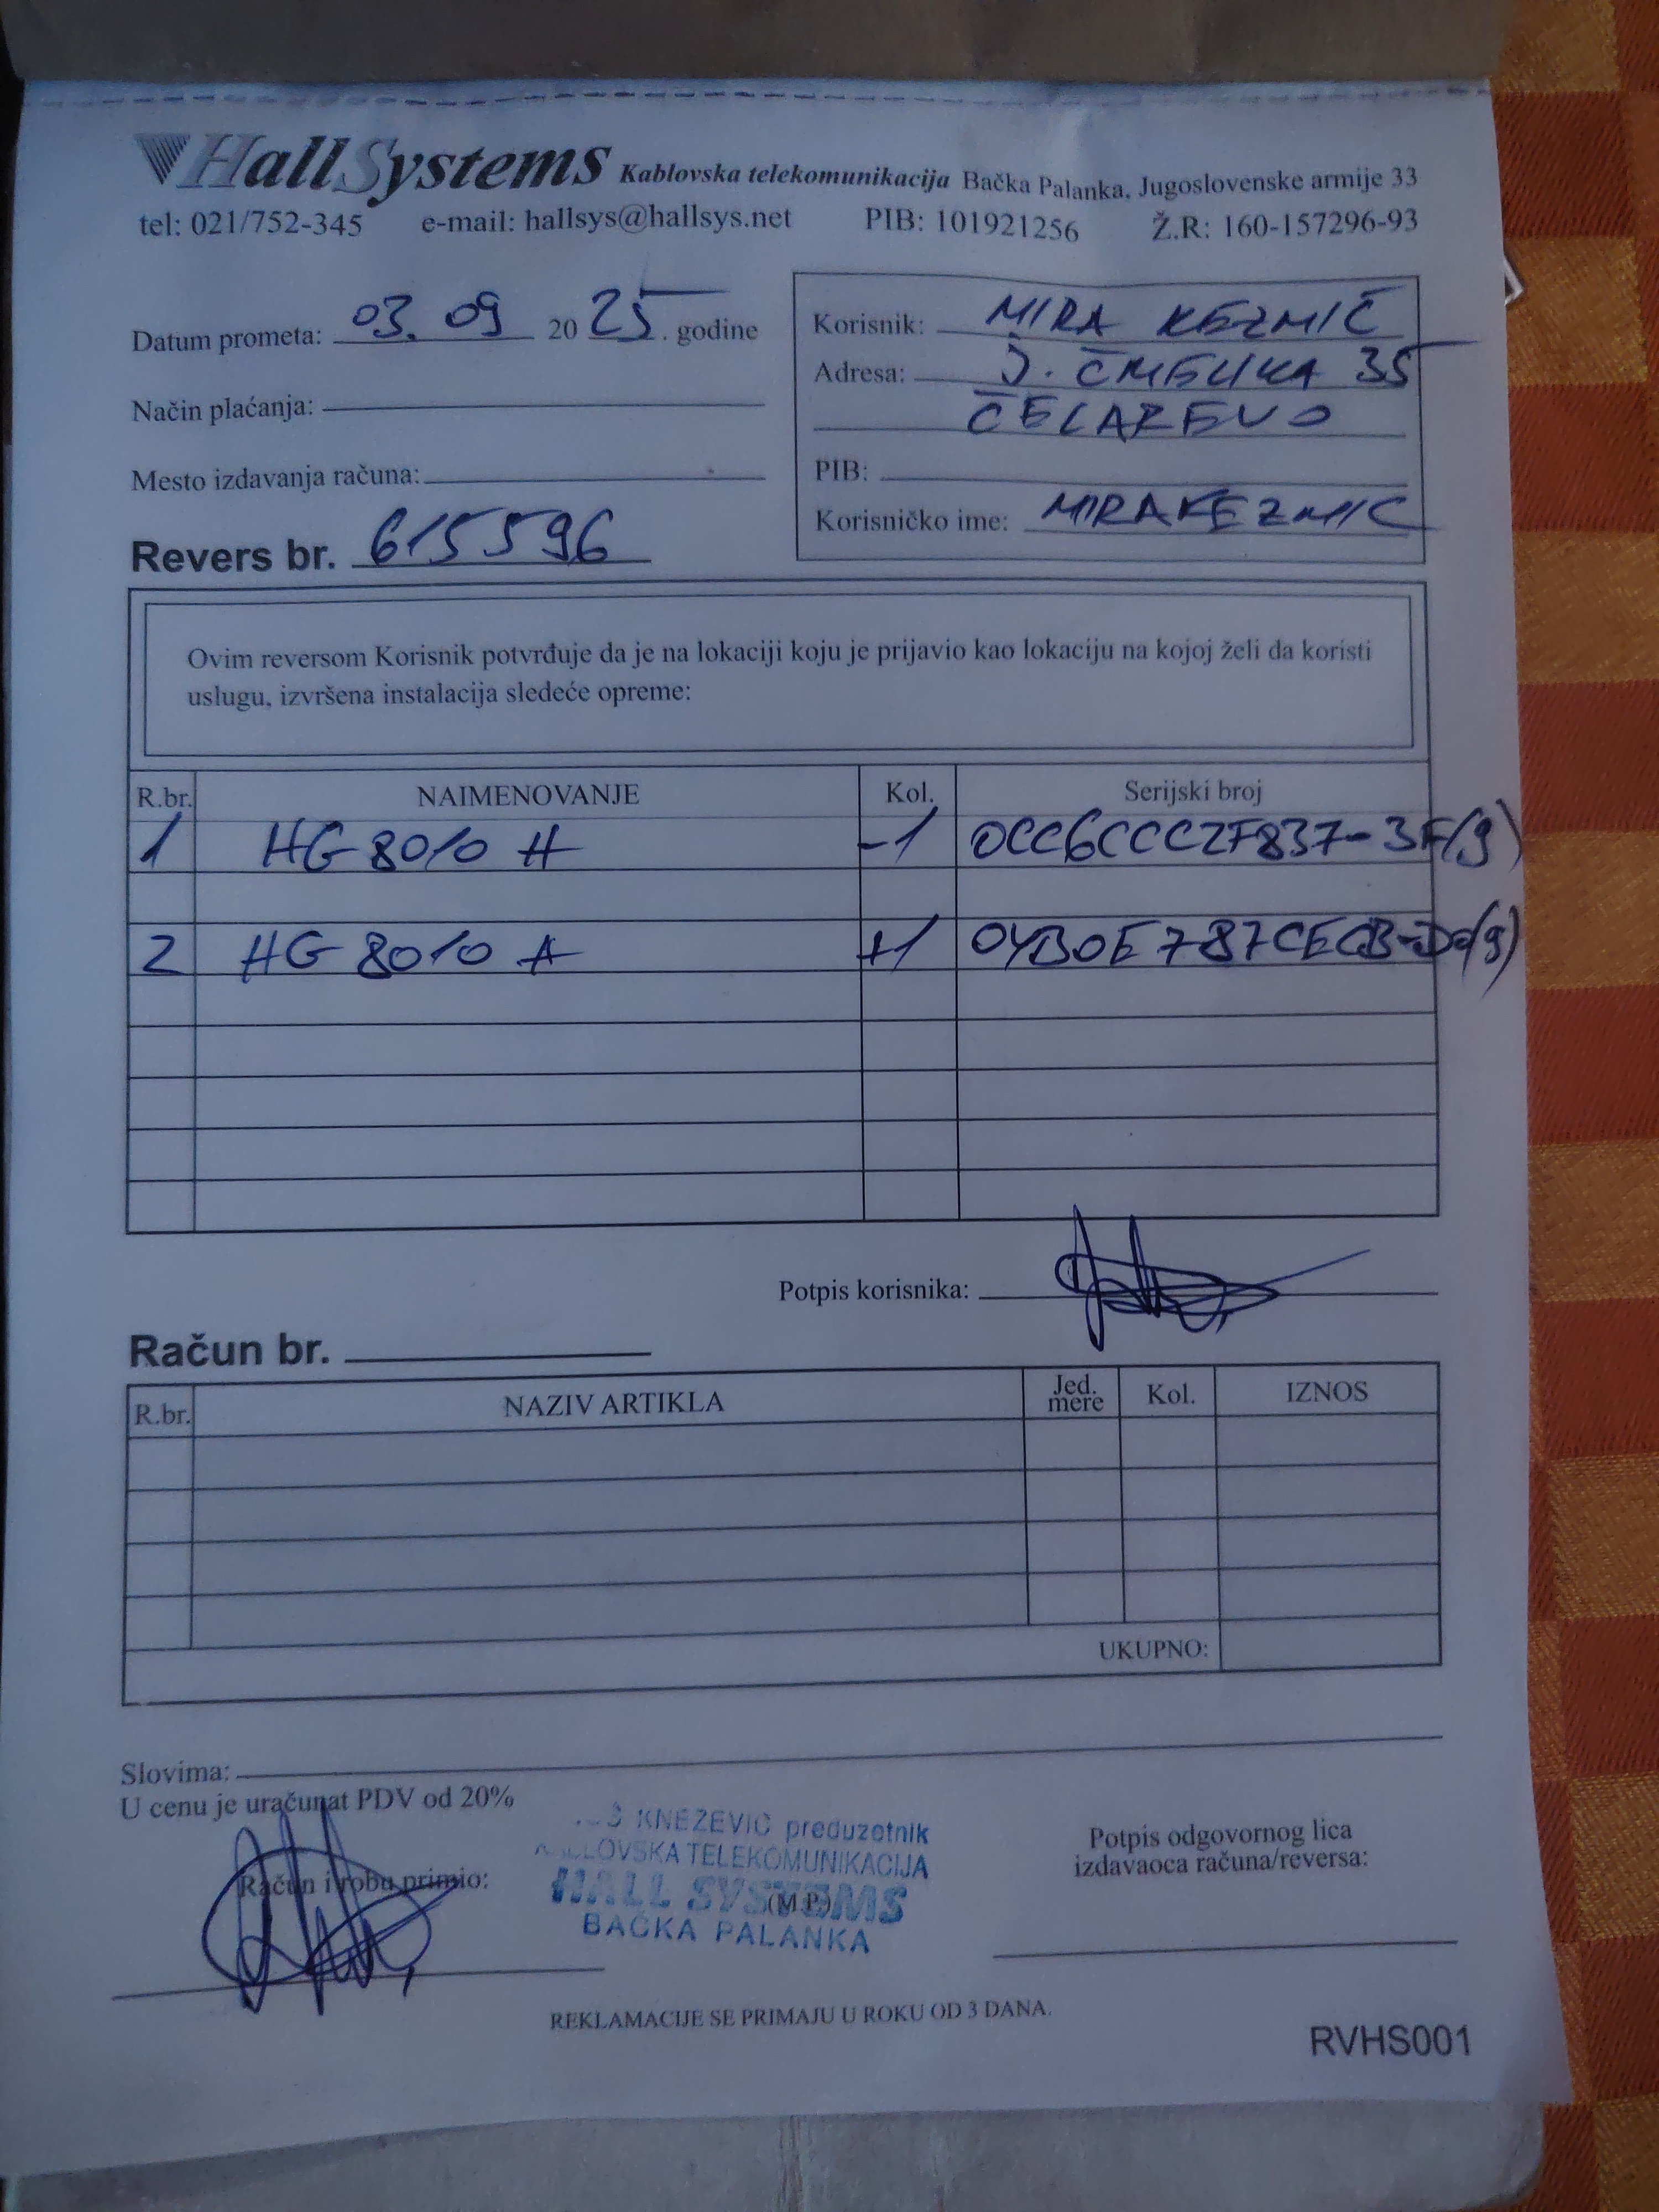 HallSystems Kablovska telekomunikacija Bačka Palanka, Jugoslovenske armije 33
tel: 021/752-345 e-mail: hallsys@hallsys.net PIB: 101921256 Ž.R: 160-157296-93
Datum prometa: 03. 09 2025. godine
Način plaćanja:
Mesto izdavanja računa:
Revers br. 615596
Korisnik: MIRA KEZMIČ
Adresa: J. ČMELIKA 35
ČELAREVO
PIB:
Korisničko ime: MIRAKEZMIC
Ovim reversom Korisnik potvrđuje da je na lokaciji koju je prijavio kao lokaciju na kojoj želi da koristi
uslugu, izvršena instalacija sledeće opreme:
R.br. NAIMENOVANJE Kol. Serijski broj
1 HG 8010 H -1 0CC6CCCZF837-3F(9)
2 HG 8010 A +1
Potpis korisnika:
Račun br.
R.br. NAZIV ARTIKLA Jed. mere Kol. IZNOS
UKUPNO:
Slovima:
U cenu je uračunat PDV od 20%
Račun i robu primio:
KNEŽEVIĆ preduzetnik
TELEKOMUNIKACIJA
HALL SYSTEMS
(M.P.)
BAČKA PALANKA
Potpis odgovornog lica
izdavaoca računa/reversa:
REKLAMACIJE SE PRIMAJU U ROKU OD 3 DANA.
RVHS001